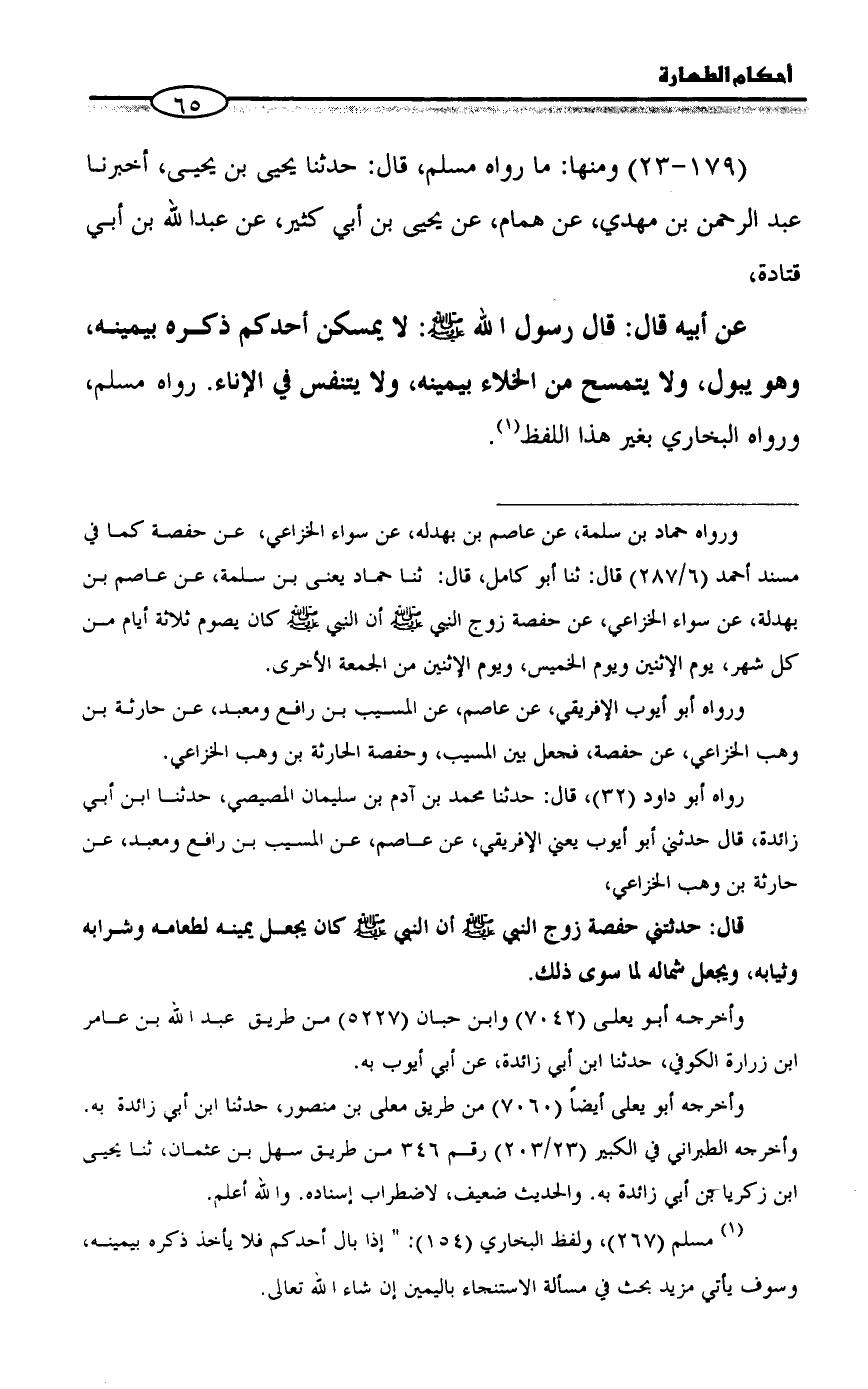 أحكام الطهارة
٦٥
(١٧٩-٢٣) ومنها: ما رواه مسلم، قال: حدثنا يحيى بن يحيى، أخبرنا
عبد الرحمن بن مهدي، عن همام، عن يحيى بن أبي كثير، عن عبدا لله بن أبي
قتادة،
عن أبيه قال: قال رسول ا لله ﷺ: لا يمسكن أحدكم ذكره بيمينه،
وهو يبول، ولا يتمسح من الخلاء بيمينه، ولا يتنفس في الإناء. رواه مسلم،
ورواه البخاري بغير هذا اللفظ(١).
ورواه حماد بن سلمة، عن عاصم بن بهدله، عن سواء الخزاعي، عن حفصة كما في
مسند أحمد (٢٨٧/٦) قال: ثنا أبو كامل، قال: ثنا حماد يعنى بن سلمة، عن عاصم بن
بهدلة، عن سواء الخزاعي، عن حفصة زوج النبي ﷺ أن النبي ﷺ كان يصوم ثلاثة أيام من
كل شهر، يوم الإثنين ويوم الخميس، ويوم الإثنين من الجمعة الأخرى.
ورواه أبو أيوب الإفريقي، عن عاصم، عن المسيب بن رافع ومعبد، عن حارثة بن
وهب الخزاعي، عن حفصة، فجعل بين المسيب، وحفصة الحارثة بن وهب الخزاعي.
رواه أبو داود (٣٢)، قال: حدثنا محمد بن آدم بن سليمان المصيصي، حدثنا ابن أبي
زائدة، قال حدثني أبو أيوب يعني الإفريقي، عن عاصم، عن المسيب بن رافع ومعبد، عن
حارثة بن وهب الخزاعي،
قال: حدثتني حفصة زوج النبي ﷺ أن النبي ﷺ كان يجعل يمينه لطعامه وشرابه
وثيابه، ويجعل شماله لما سوى ذلك.
وأخرجه أبو يعلى (٧٠٤٢) وابن حبان (٥٢٢٧) من طريق عبد ا لله بن عامر
ابن زرارة الكوفي، حدثنا ابن أبي زائدة، عن أبي أيوب به.
وأخرجه أبو يعلى أيضاً (٧٠٦٠) من طريق معلى بن منصور، حدثنا ابن أبي زائدة به.
وأخرجه الطبراني في الكبير (٢٠٣/٢٣) رقم ٣٤٦ من طريق سهل بن عثمان، ثنا يحيى
ابن زكريا بن أبي زائدة به. والحديث ضعيف، لاضطراب إسناده. وا لله أعلم.
(١) مسلم (٢٦٧)، ولفظ البخاري (١٥٤): " إذا بال أحدكم فلا يأخذ ذكره بيمينه،
وسوف يأتي مزيد بحث في مسألة الاستنجاء باليمين إن شاء ا لله تعالى.